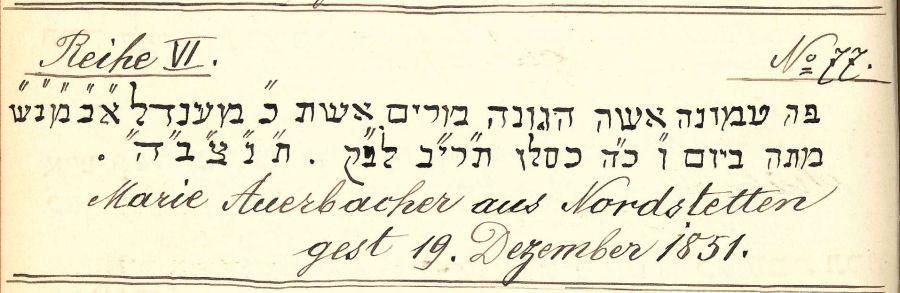 Reihe VI. No 77.
פה טמונה אשה הגונה מורים אשת כ״ מענדל א״ב״מ״נ״ש״
מתה ביום ו״ כ״ה כסלו תרי״ב לפ״ק . ת״נ״צ״ב״ה״ .
Marie Auerbacher aus Nordstetten
gest 19. Dezember 1851.